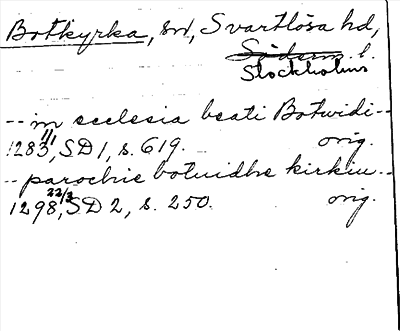 Botkyrka, sn, Svartlösa hd,
Söderm. l.
Stockholms
-- in ecclesia beati Botwidi --
1283 1/11, SD 1, s. 619. orig.
-- parochie botuidhe kirkiu --
1298 22/3, SD 2, s. 250. orig.